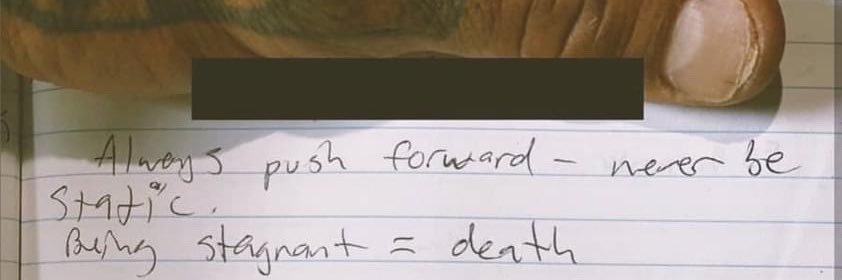 Always push forward - never be
static.
Being stagnant = death